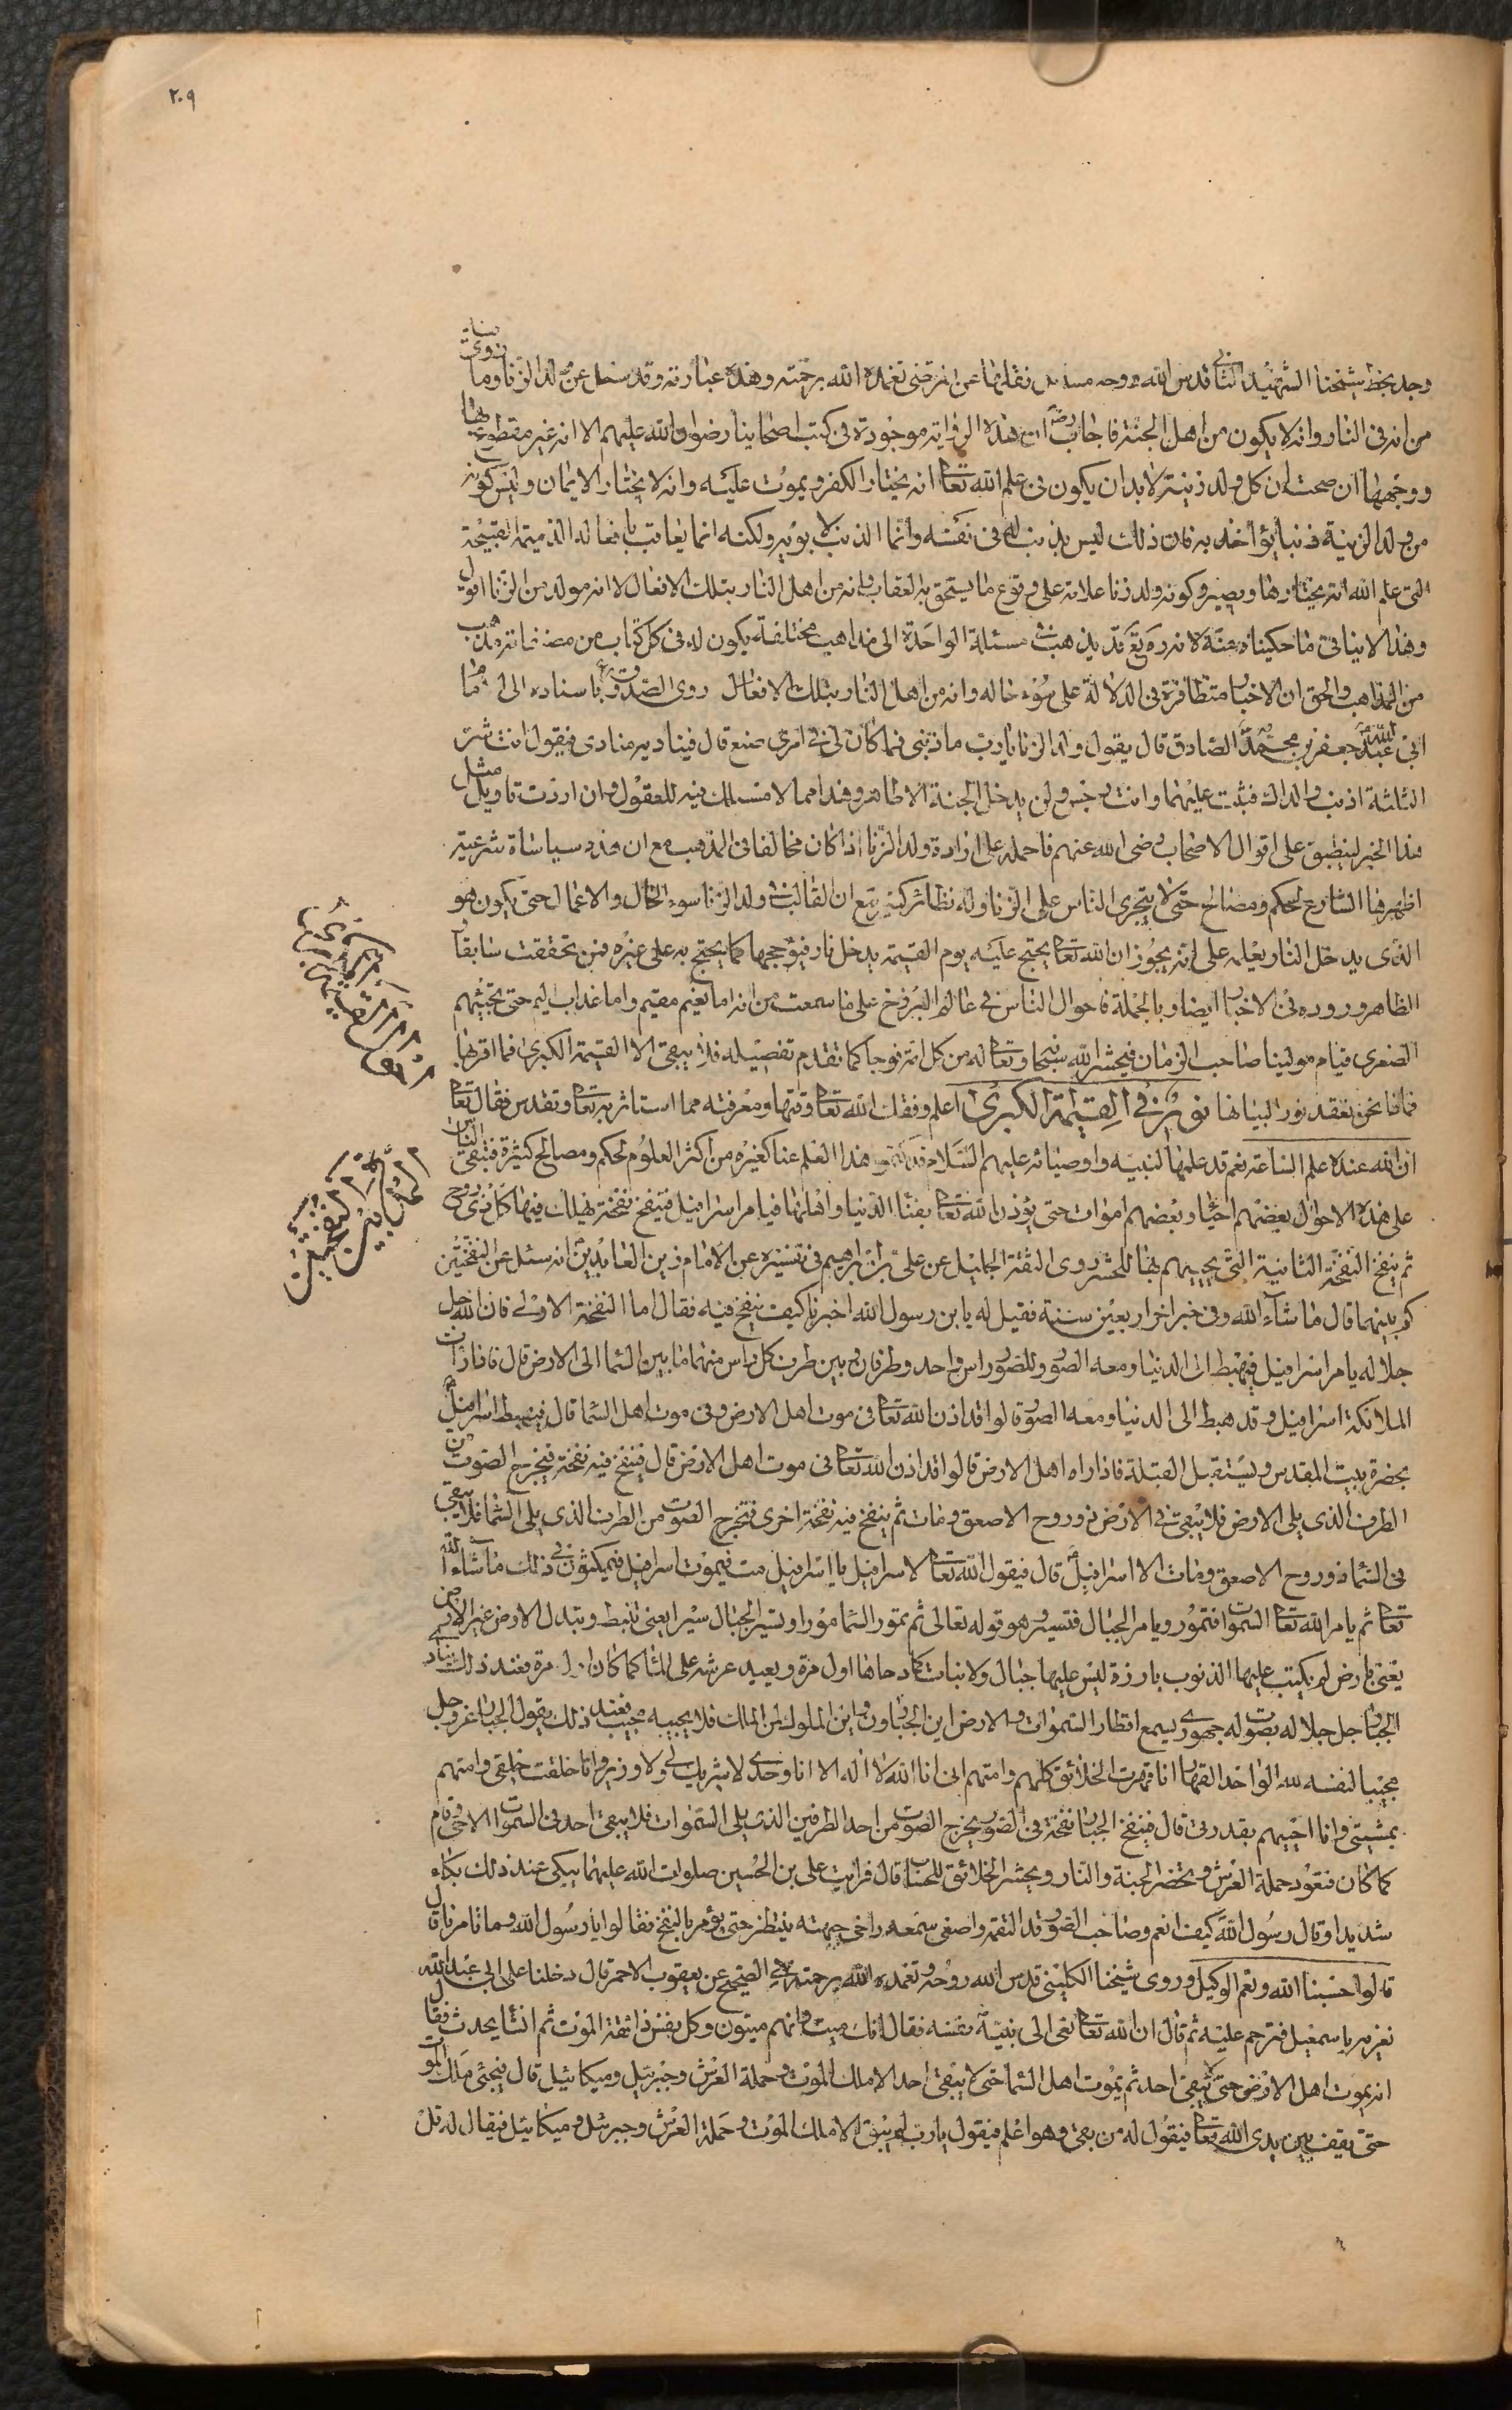 ٢٠٩
وجد بخط شيخنا الشهيد الثاني قدس الله روحه مسائل نقلها عن المرتضى تغمده الله برحمته وهذه عبارته وقد سئل عن ولد الزنا وما روى فيه
من انه في النار وانه لا يكون من اهل الجنة فاجاب رض ان هذه الرواية موجودة في كتب اصحابنا رضوان الله عليهم الا انه غير مقطوع بها
ووجهها ان صحت ان كل ولد زنية لا بد ان يكون في علم الله تعا انه يختار الكفر ويموت عليه وانه لا يختار الايمان وليس كونه
من ولد الزنية ذنبا يؤاخذ به فان ذلك ليس بذنب له في نفسه وانما الذنب لابويه ولكنه انما يعاقب بافعاله الذميمة القبيحة
التي علم الله انه يختارها ويصير كونه ولد زنا علامة على وقوع ما يستحق به العقاب وانه من اهل النار بتلك الافعال لا انه مولد من الزنا اقول
وهذا لا ينافي ما حكيناه عنه لانه ره تع قد يذهب في مسئلة الواحدة الى مذاهب مختلفة يكون له في كل كتاب من مصنفاته مذهب
من المذاهب والحق ان الاخبار متظافرة في الدلالة على سوء حاله وانه من اهل النار بتلك الافعال روى الصدوق ره باسناده الى الامام
ابي عبد الله جعفر بن محمد الصادق قال يقول ولد الزنا يا رب ما ذنبي فما كان لي في امري صنع قال فيناديه مناد فيقول انت شر
الثلثة اذنب والداك فنبت عليهما وانت رجس ولن يدخل الجنة الا طاهر وهذا مما لا مسلك فيه للعقول وان اردت تاويل مثل
هذا الخبر لينطبق على اقوال الاصحاب رضي الله عنهم فاحمله على ارادة ولد الزنا اذا كان مخالفا في المذهب مع ان هذه سياسة شرعية
اظهرها الشارع لحكم ومصالح حتى لا يتجرى الناس على الزنا وله نظائر كثيرة مع ان الغالب في ولد الزنا سوء الحال والاعمال حتى يكون هو
الذي يدخل النار بعلمه على انه يجوز ان الله تعا يحتج عليه يوم القيمة بدخل نار فيؤججها كما يحتج به على غيره فمن تحققت سابقا
الظاهر وروده في الاخبار ايضا وبالجملة فاحوال الناس في عالم البرزخ على ما سمعت من انه اما نعيم مقيم واما عذاب اليم حتى يجيئهم
الصغرى قيام مولينا صاحب الزمان فيحشر الله سبحانه وتعا له من كل امة فوجا كما تقدم تفصيله فلا يبقى الا القيمة الكبرى فما اقربها
فها نحن نعقد نور البيانها نور في القيمة الكبرى اعلم وفقك الله تعا وقتها ومعرفته مما استاثر به تعا وتقدس فقال تعا
ان الله عنده علم الساعة نعم قد علمها لنبيه واوصيائه عليهم السلام هذا العلم عنا كغيره من اكثر العلوم لحكم ومصالح كثيرة فتبقى الناس
على هذه الاحوال بعضهم احياء وبعضهم اموات حتى يؤذن الله تعا بفناء الدنيا واهلها فيامر اسرافيل فينفخ نفخة يهلك فيها كل ذي روح
ثم ينفخ النفخة الثانية التي يحييهم بها للحشر روى الثقة الجليل عن علي بن ابراهيم في تفسيره عن الامام زين العابدين انه سئل عن النفختين
كم بينهما قال ما شاء الله وفي خبر اخر اربعين سنة فقيل له يا بن رسول الله اخبرنا كيف ينفخ فيه فقال اما النفخة الاولى فان الله جل
جلاله يامر اسرافيل فيهبط الى الدنيا ومعه الصور وللصور راس واحد وطرفان وبين طرف كل راس منهما ما بين السماء الى الارض قال فاذا رات
الملائكة اسرافيل وقد هبط الى الدنيا ومعه الصور قالوا قد اذن الله تعا في موت اهل الارض وفي موت اهل السماء قال فيهبط اسرافيل
بحضرة بيت المقدس ويستقبل القبلة فاذا راه اهل الارض قالوا قد اذن الله تعا في موت اهل الارض قال فينفخ فيه نفخة فيخرج الصوت من
الطرف الذي يلي الارض فلا يبقى في الارض ذو روح الا صعق ومات ثم ينفخ فيه نفخة اخرى فيخرج الصوت من الطرف الذي يلي السماء فلا يبقى
في السماء ذو روح الا صعق ومات الا اسرافيل قال فيقول الله تعا لاسرافيل يا اسرافيل مت فيموت اسرافيل فيمكثون في ذلك ما شاء الله
تعا ثم يامر الله تعا السموات فتمور ويامر الجبال فتسير وهو قوله تعالى ثم تمور السماء مورا وتسير الجبال سيرا يعني تنبسط وتبدل الارض غير الارض
يعني بارض لم يكتب عليها الذنوب بارزة ليس عليها جبال ولا نبات كما دحاها اول مرة ويعيد عرشه على الماء كما كان اول مرة فعند ذلك ينادي
الجبار جل جلاله بصوت له جهوري يسمع اقطار السموات والارض اين الجبارون واين الملوك لمن الملك فلا يجيبه مجيب فعند ذلك يقول الجبار عز وجل
مجيبا لنفسه لله الواحد القهار انا قهرت الخلائق كلهم وامتهم اني انا الله لا اله الا انا وحدي لا شريك لي ولا وزير وانا خلقت خلقي وامتهم
بمشيتي وانا احييهم بقدرتي قال فينفخ الجبار نفخة في الصور يخرج الصوت من احد الطرفين الذي يلي السموات فلا يبقى احد في السموات الا حي وقام
كما كان فتعود حملة العرش وتحضر الجنة والنار ويحشر الخلائق للحساب قال فرايت علي بن الحسين صلوات الله عليهما يبكي عند ذلك بكاء
شديدا وقال رسول الله كيف انعم وصاحب الصور قد التقمه واصغى سمعه راخى جبهته ينتظر حتى يؤمر بالنفخ فقالوا يا رسول الله وما تامرنا قال
قولوا حسبنا الله ونعم الوكيل وروى شيخنا الكليني قدس الله روحه وتغمده الله برحمته في الصحيح عن يعقوب الاحمر قال دخلنا على ابي عبد الله
نعزيه باسمعيل فترحم عليه ثم قال ان الله تعا نعى الى نبيه نفسه فقال انك ميت وانهم ميتون وكل نفس ذائقة الموت ثم انشا يحدث فقال
انه يموت اهل الارض حتى لا يبقى احد ثم يموت اهل السماء حتى لا يبقى احد الا ملك الموت وحملة العرش وجبرئيل وميكائيل قال فيجئ ملك الموت
حتى يقف بين يدي الله تعا فيقول له من بقي وهو اعلم فيقول يا رب لم يبق الا ملك الموت وحملة العرش وجبرئيل وميكائيل فيقال له قل